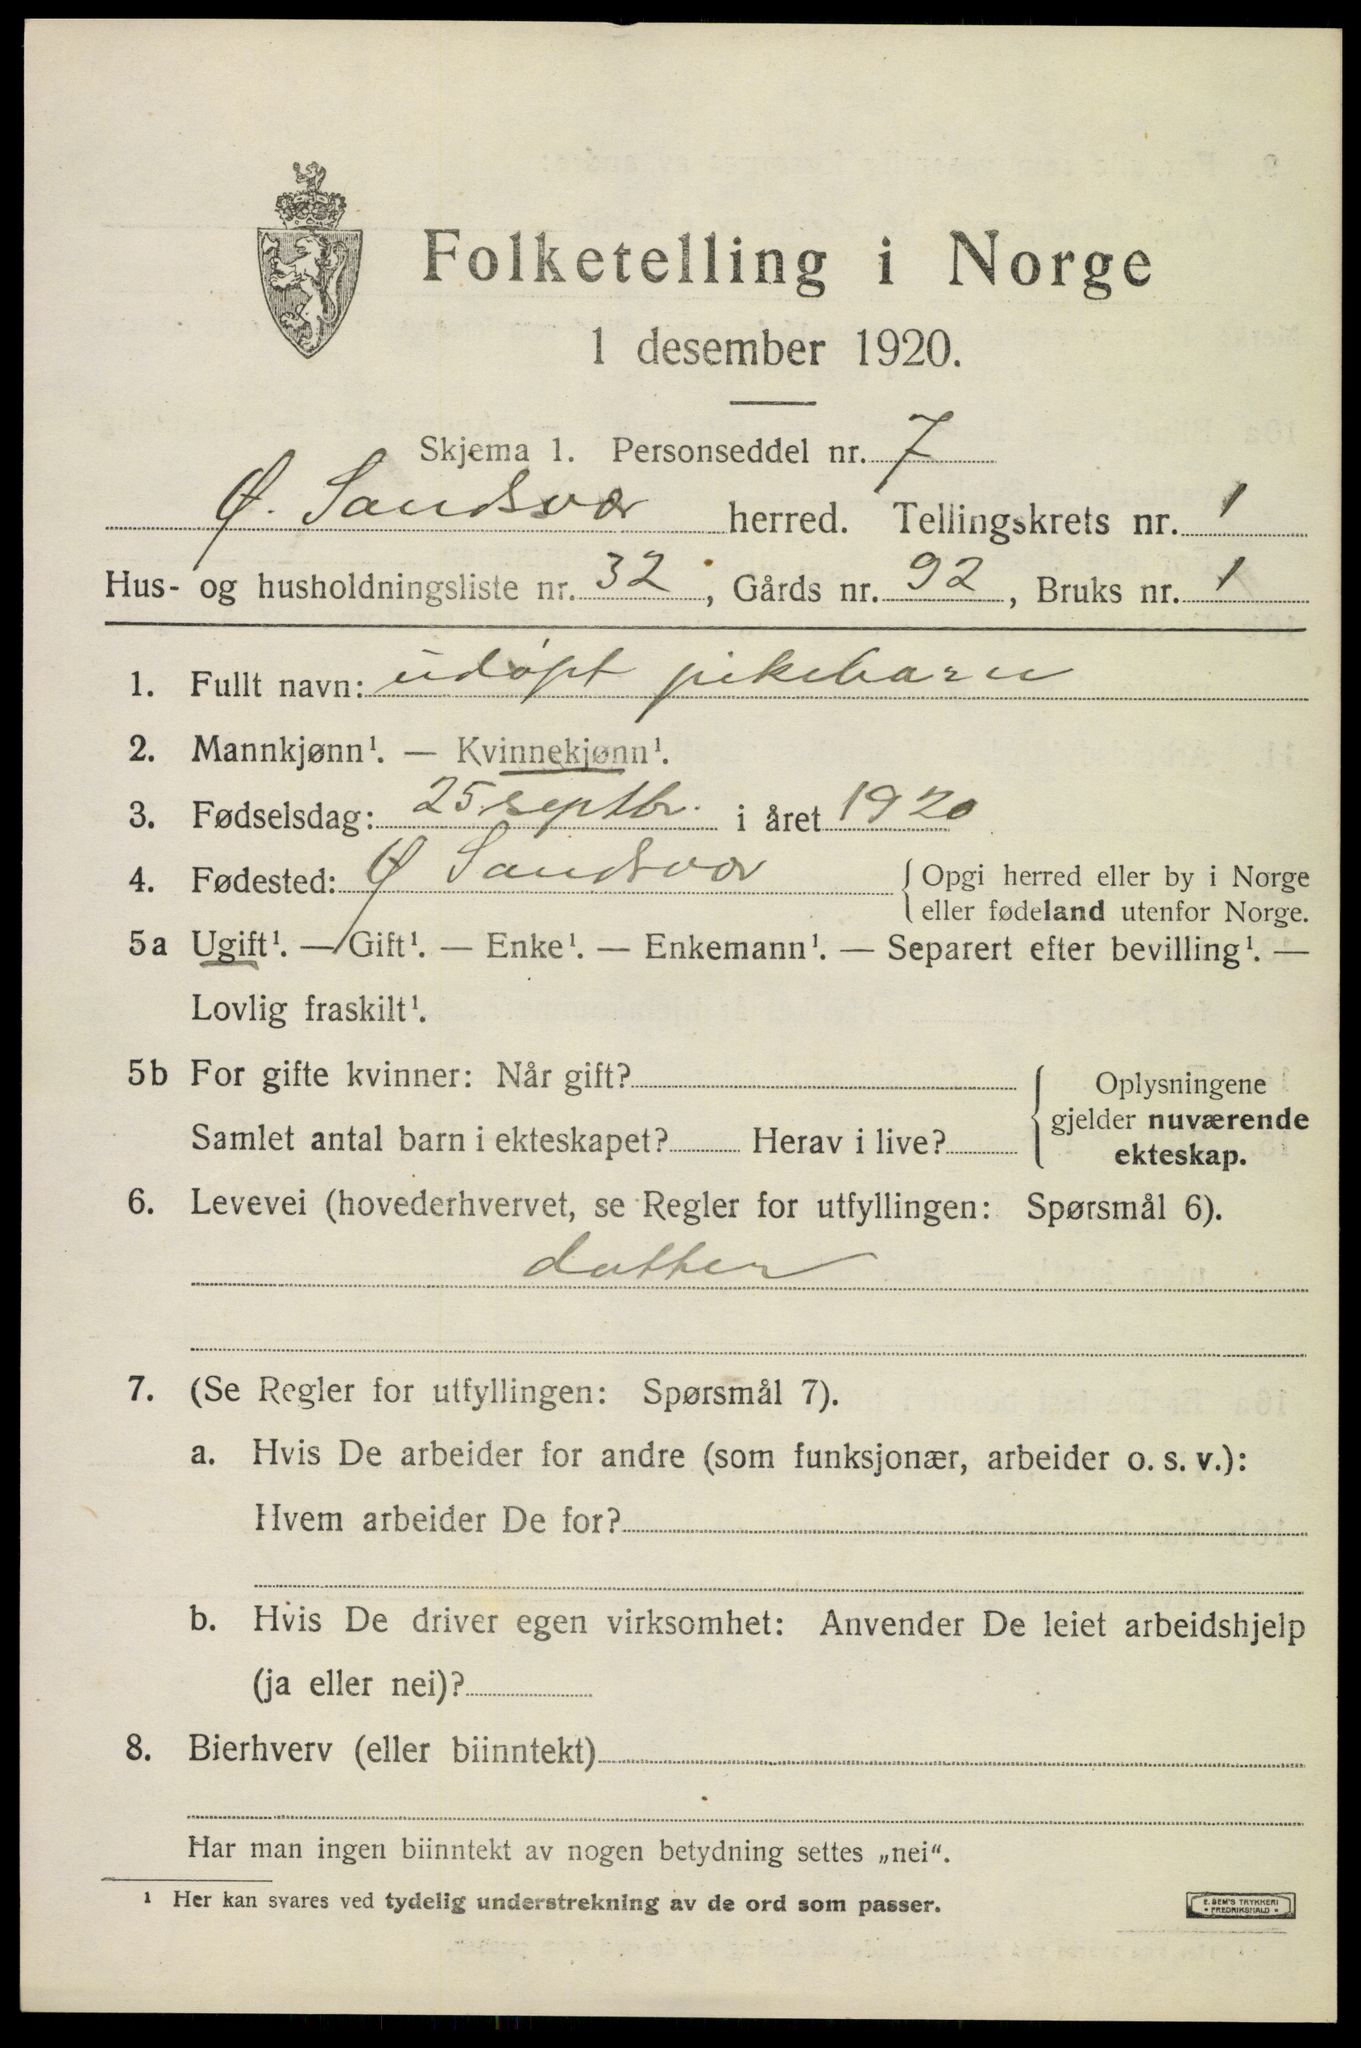 Folketelling i Norge
1 desember 1920.
Skjema 1. Personseddel nr. 7
Ø. Sandsvær herred. Tellingskrets nr. 1
Hus- og husholdningsliste nr. 32, Gårds nr. 92, Bruks nr. 1
1. Fullt navn: udøpt pikebarn
2. Mannkjønn¹. — Kvinnekjønn¹.
3. Fødselsdag: 25 septbr. i året 1920
4. Fødested: Ø Sandsvær {Opgi herred eller by i Norge
eller fødeland utenfor Norge.
5a Ugift¹. — Gift¹. — Enke¹. — Enkemann¹. — Separert efter bevilling¹. —
Lovlig fraskilt¹.
5b For gifte kvinner: Når gift? {Oplysningene
gjelder nuværende
Samlet antal barn i ekteskapet? Herav i live? ekteskap.
6. Levevei (hovederhvervet, se Regler for utfyllingen: Spørsmål 6).
datter
7. (Se Regler for utfyllingen: Spørsmål 7).
a. Hvis De arbeider for andre (som funksjonær, arbeider o. s. v.):
Hvem arbeider De for?
b. Hvis De driver egen virksomhet: Anvender De leiet arbeidshjelp
(ja eller nei)?
8. Bierhverv (eller biinntekt)
Har man ingen biinntekt av nogen betydning settes „nei“.
¹ Her kan svares ved tydelig understrekning av de ord som passer.
E. SEM'S TRYKKERI
• FREDRIKSHALD •